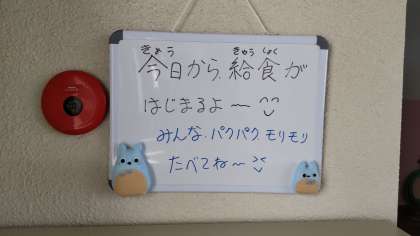 きょう きゅうしょく
今日から、給食が
はじまるよ〜^^
みんな、パクパク、モリモリ
たべてね〜